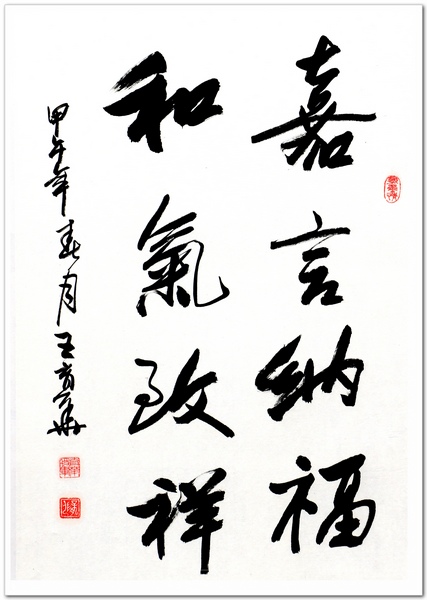 嘉言納福
和氣致祥
甲午年春月王育华